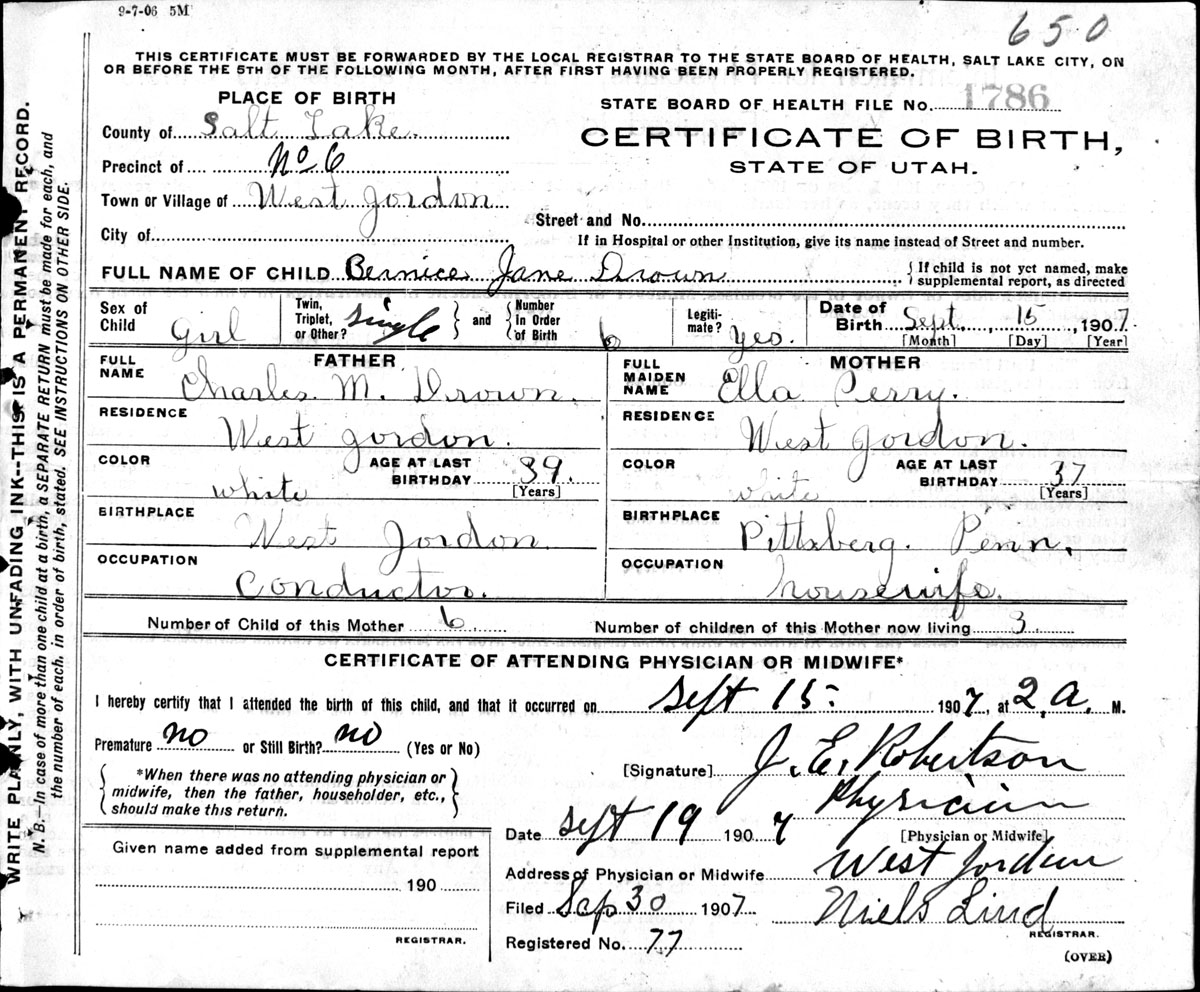 9-7-06 5M
650
THIS CERTIFICATE MUST BE FORWARDED BY THE LOCAL REGISTRAR TO THE STATE BOARD OF HEALTH, SALT LAKE CITY, ON
OR BEFORE THE 5TH OF THE FOLLOWING MONTH, AFTER FIRST HAVING BEEN PROPERLY REGISTERED.
PLACE OF BIRTH
County of Salt Lake.
Precinct of No 6
Town or Village of West Jordon
City of
STATE BOARD OF HEALTH FILE No. 1786
CERTIFICATE OF BIRTH,
STATE OF UTAH.
Street and No.
If in Hospital or other Institution, give its name instead of Street and number.
FULL NAME OF CHILD Bernice Jane Drown
{ If child is not yet named, make
supplemental report, as directed
Sex of Child Girl
Twin, Triplet, or Other? single } and { Number In Order of Birth 6
Legiti-mate? Yes.
Date of Birth Sept. 15, 1907
[Month] [Day] [Year]
FATHER
FULL NAME Charles M. Drown.
RESIDENCE West Jordon.
COLOR white
AGE AT LAST BIRTHDAY 39. [Years]
BIRTHPLACE West Jordon
OCCUPATION Conductor.
MOTHER
FULL MAIDEN NAME Ella Perry.
RESIDENCE West Jordon.
COLOR white
AGE AT LAST BIRTHDAY 37 [Years]
BIRTHPLACE Pittsberg. Penn,
OCCUPATION housewife.
Number of Child of this Mother 6 Number of children of this Mother now living 3
CERTIFICATE OF ATTENDING PHYSICIAN OR MIDWIFE*
I hereby certify that I attended the birth of this child, and that it occurred on Sept 15 1907, at 2 a. M.
Premature no or Still Birth? no (Yes or No)
{ *When there was no attending physician or
midwife, then the father, householder, etc.,
should make this return. }
[Signature] J. E. Robertson
Physician
[Physician or Midwife]
Date Sept 19 1907
Address of Physician or Midwife West Jordan
Filed Sep 30 1907 Niels Lind
REGISTRAR.
Registered No. 77
(OVER)
Given name added from supplemental report
190
REGISTRAR.
WRITE PLAINLY, WITH UNFADING INK--THIS IS A PERMANENT RECORD.
N. B.—In case of more than one child at a birth, a SEPARATE RETURN must be made for each, and
the number of each, in order of birth, stated. SEE INSTRUCTIONS ON OTHER SIDE.